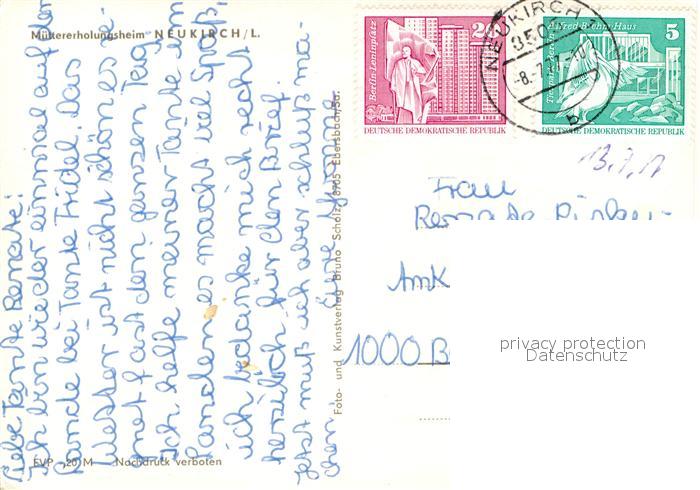 Müttererholungsheim NEUKIRCH/L.
Liebe Tante Renate!
Ich bin wieder einmal auf der
Rande bei Tante Friedel. Das
Wetter ist nicht schön es re-
gnet fast den ganzen Tag.
Ich helfe meiner Tante im
Landen es macht viel Spaß,
ich bedanke mich recht
herzlich für den Brief.
Jetzt muß ich aber schluß ma-
chen. Eure
EVP -,20 M Nachdruck verboten
Foto- und Kunstverlag Bruno Scholz, 8705 Ebersbach/Sa.
Berlin-Leninplatz
20
DEUTSCHE DEMOKRATISCHE REPUBLIK
Tierpark Berlin Alfred-Brehm-Haus
5
DEUTSCHE DEMOKRATISCHE REPUBLIK
NEUKIRCH
8504
-8.-7.77.-10
b
Frau
Renate
1000 B
privacy protection
Datenschutz